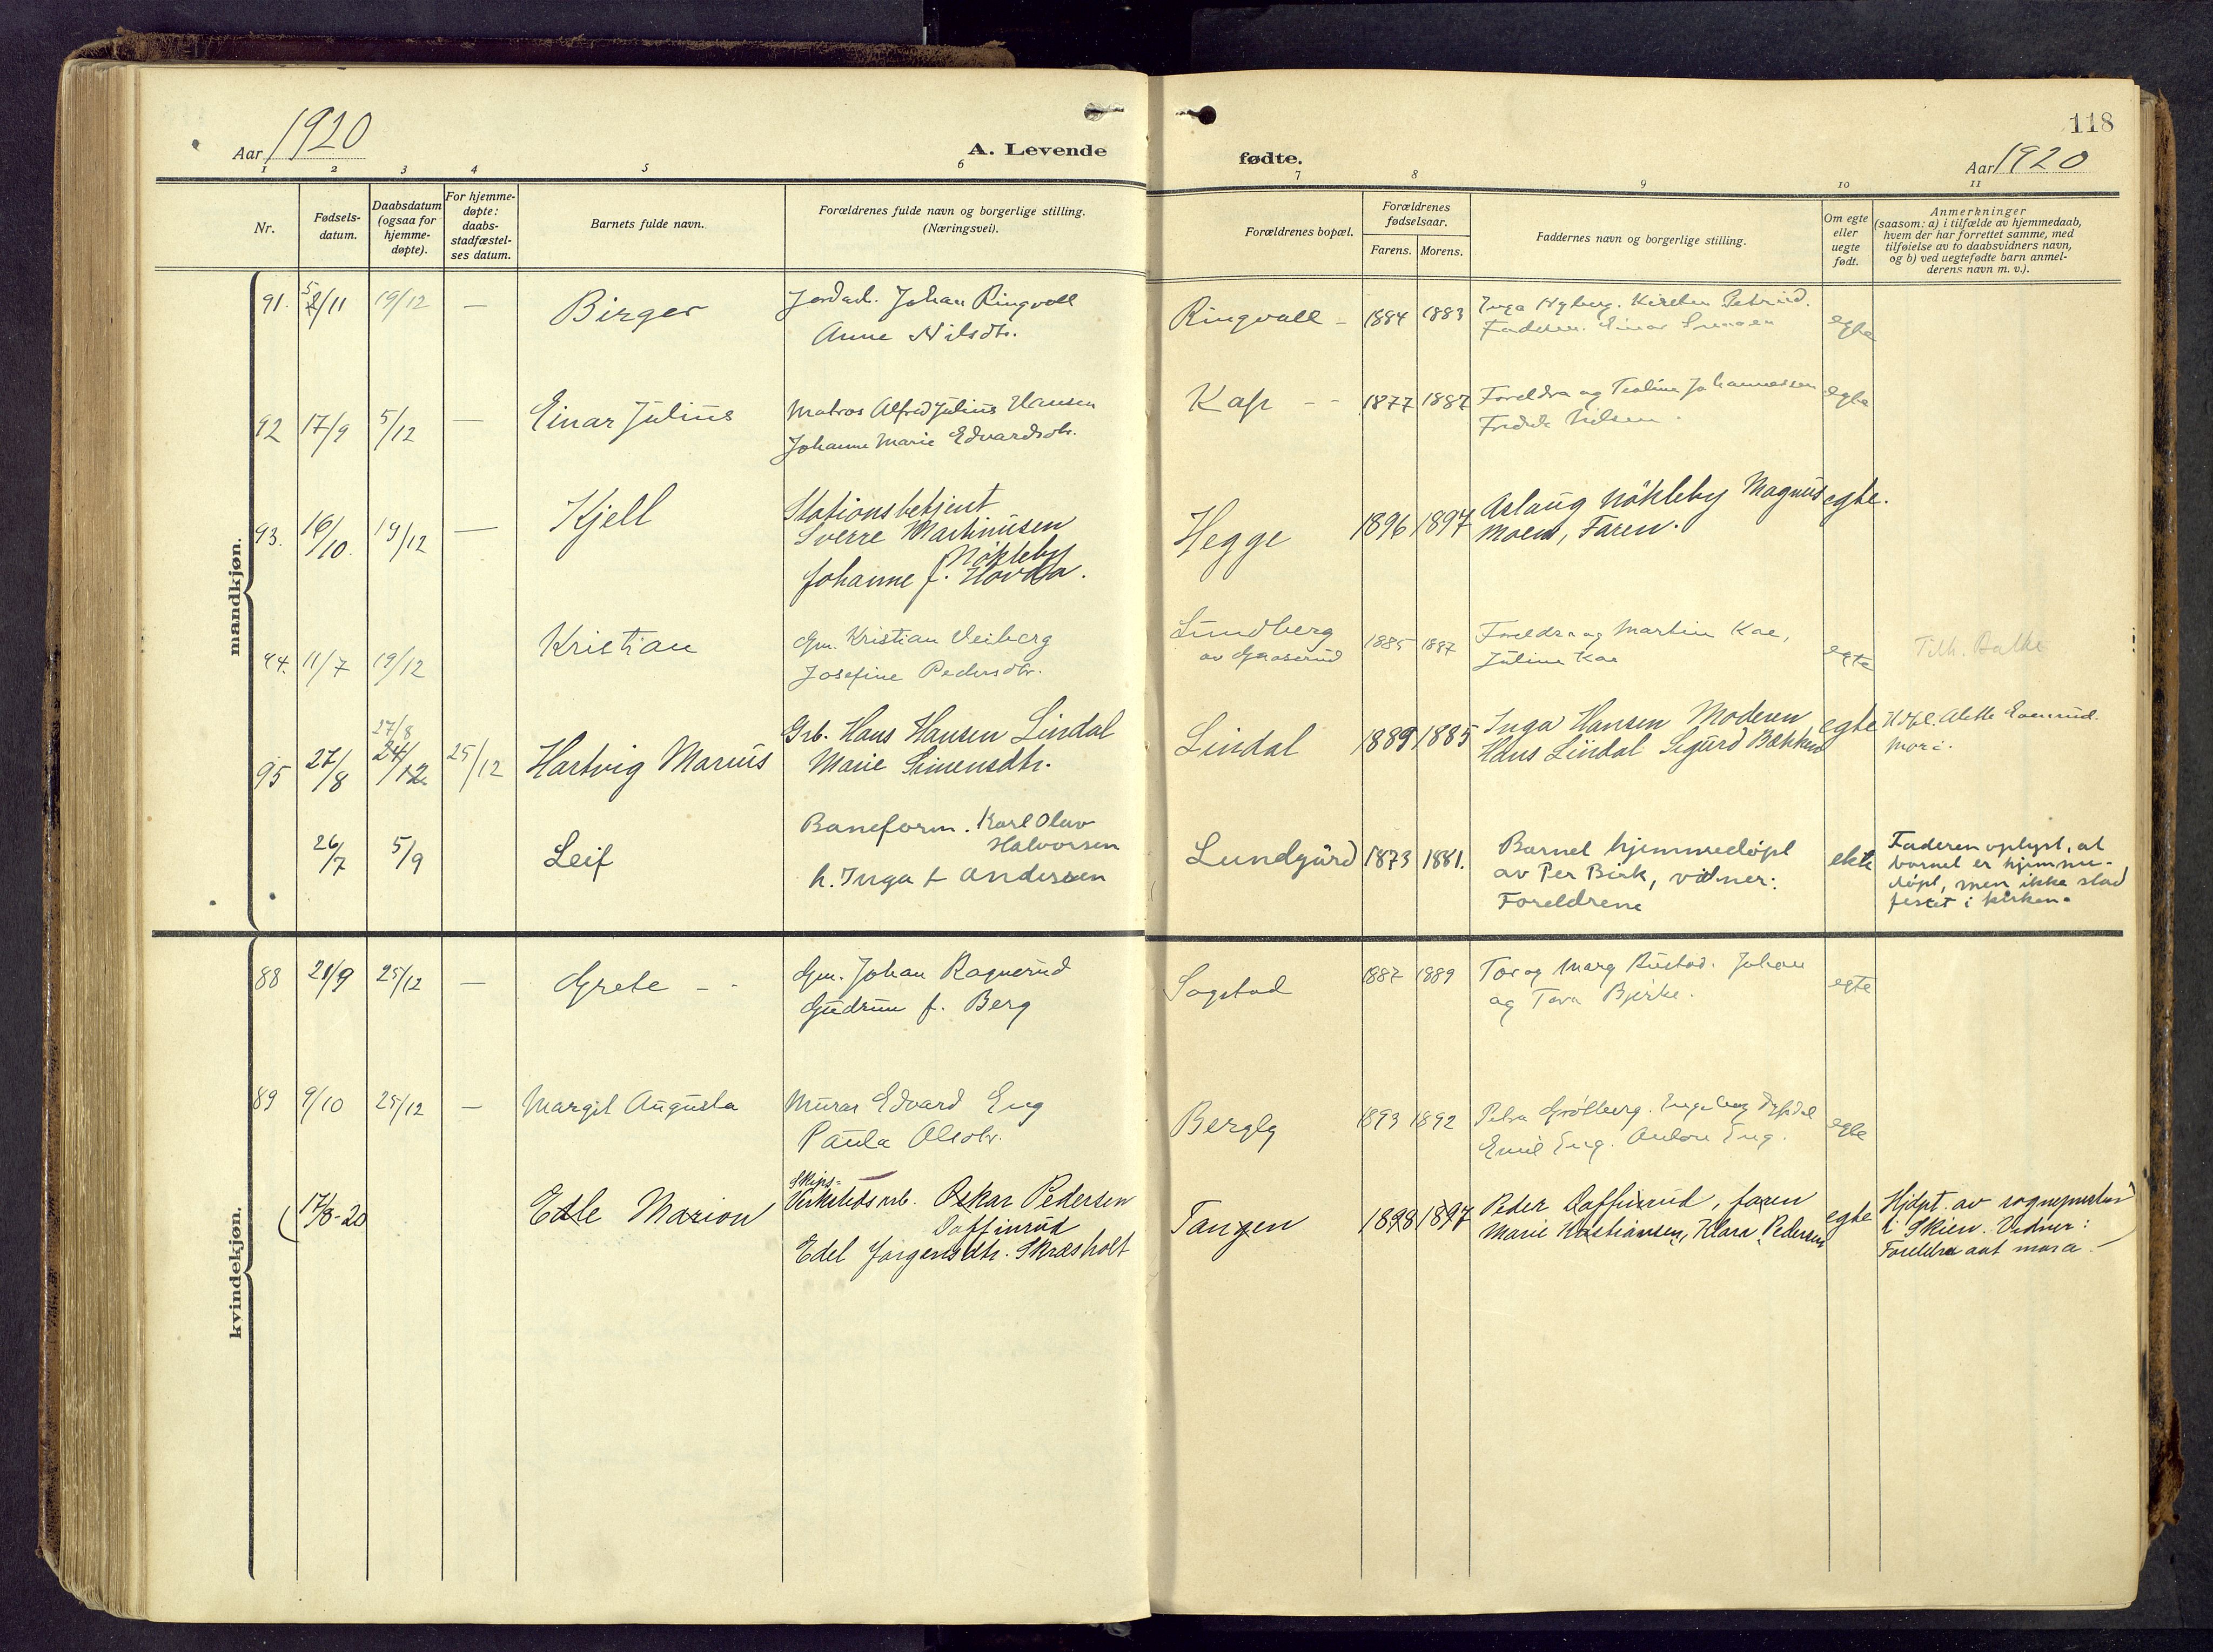 Aar 1920
A. Levende
1 2 3 4 5 6
Nr.
Fødsels-
datum.
Daabsdatum
(ogsaa for
hjemme-
døpte).
For hjemme-
døpte:
daabs-
stadfæstel-
ses datum.
Barnets fulde navn.
Forældrenes fulde navn og borgerlige stilling.
(Næringsvei).
mandkjøn.
91. 5/11 19/12 — Birger
Jordarb. Johan Ringvoll
Anne Nilsdtr.
92 17/9 5/12 — Einar Julius
Matros Alfred Julius Hansen
Johanne Marie Edvardsdtr.
93. 16/10. 19/12 — Kjell
Stationsbetjent
Sverre Martinusen
Nökleby
Johanne f. Hovda.
94. 11/7 19/12 Kristian
Gm. Kristian Veiberg
Josefine Pedersdtr.
27/8
95 27/8 24/12 25/12 Hartvig Marius
Grb. Hans Hansen Lindal
Marie Simensdtr.
26/7 5/9 Leif
Baneform. Karl Olav
Halvorsen
h. Inga f. Andersen
kvindekjøn.
88 21/9 25/12 — Grete - -
Gm. Johan Ragnerud
Gudrun f. Berg
89 9/10 25/12 — Margit Augusta
Murar Edvard Eng
Paula Olsdtr.
(17/8-20 Edle Marion
Skips-
Verkstedsarb. Oskar Pedersen
Daffinrud
Edel Jørgensdtr. Skræsholt
118
fødte.
Aar 1920
7 8 9 10 11
Forældrenes bopæl.
Forældrenes
fødselsaar.
Farens. Morens.
Faddernes navn og borgerlige stilling.
Om egte
eller
uegte
født.
Anmerkninger
(saasom: a) i tilfælde av hjemmedaab,
hvem der har forrettet samme, med
tilføielse av to daabsvidners navn,
og b) ved uegtefødte barn anmel-
derens navn m. v.).
Ringvoll - 1884 1883
Inga Nyberg. Kirsten
Faderen. Einar
egte
Kap - - 1877 1887
Foreldra og Teoline Johannessen
Fredrik Nilsen.
egte
Hegge 1896 1897
Aslaug Nökleby Magnus
Moen, Faren.
egte.
Lundberg
av Gaaserud
1885 1887
Foreldra og Martin Kae,
Juline Kae
egte
Tilh. Balke
Lindal 1889 1885
Inga Hansen Moderen
Hans Lindal Sigurd Bakken
egte
Alette
Mor:
Lundgård 1873 1881.
Barnet hjemmedöpt
av Per Birk, vidner:
Foreldrene
ekte
Faderen oplyst, at
barnet er hjemme-
döpt, men ikke stad
festet i kirken.
Sogstad 1887 1889
Tor og Marg Rustad. Johan
og Tora Bjerke.
egte
Bergly 1893 1892
Petra Grøtberg. Ingeborg
Emil Eng. Anton Eng.
egte
Tangen 1898 1897
Peder Daffinrud, faren
Marie Kristiansen, Klara Pedersen
egte
Hjdpt. av sognepresten
i Skien. Vidner:
Foreldra aat mora.